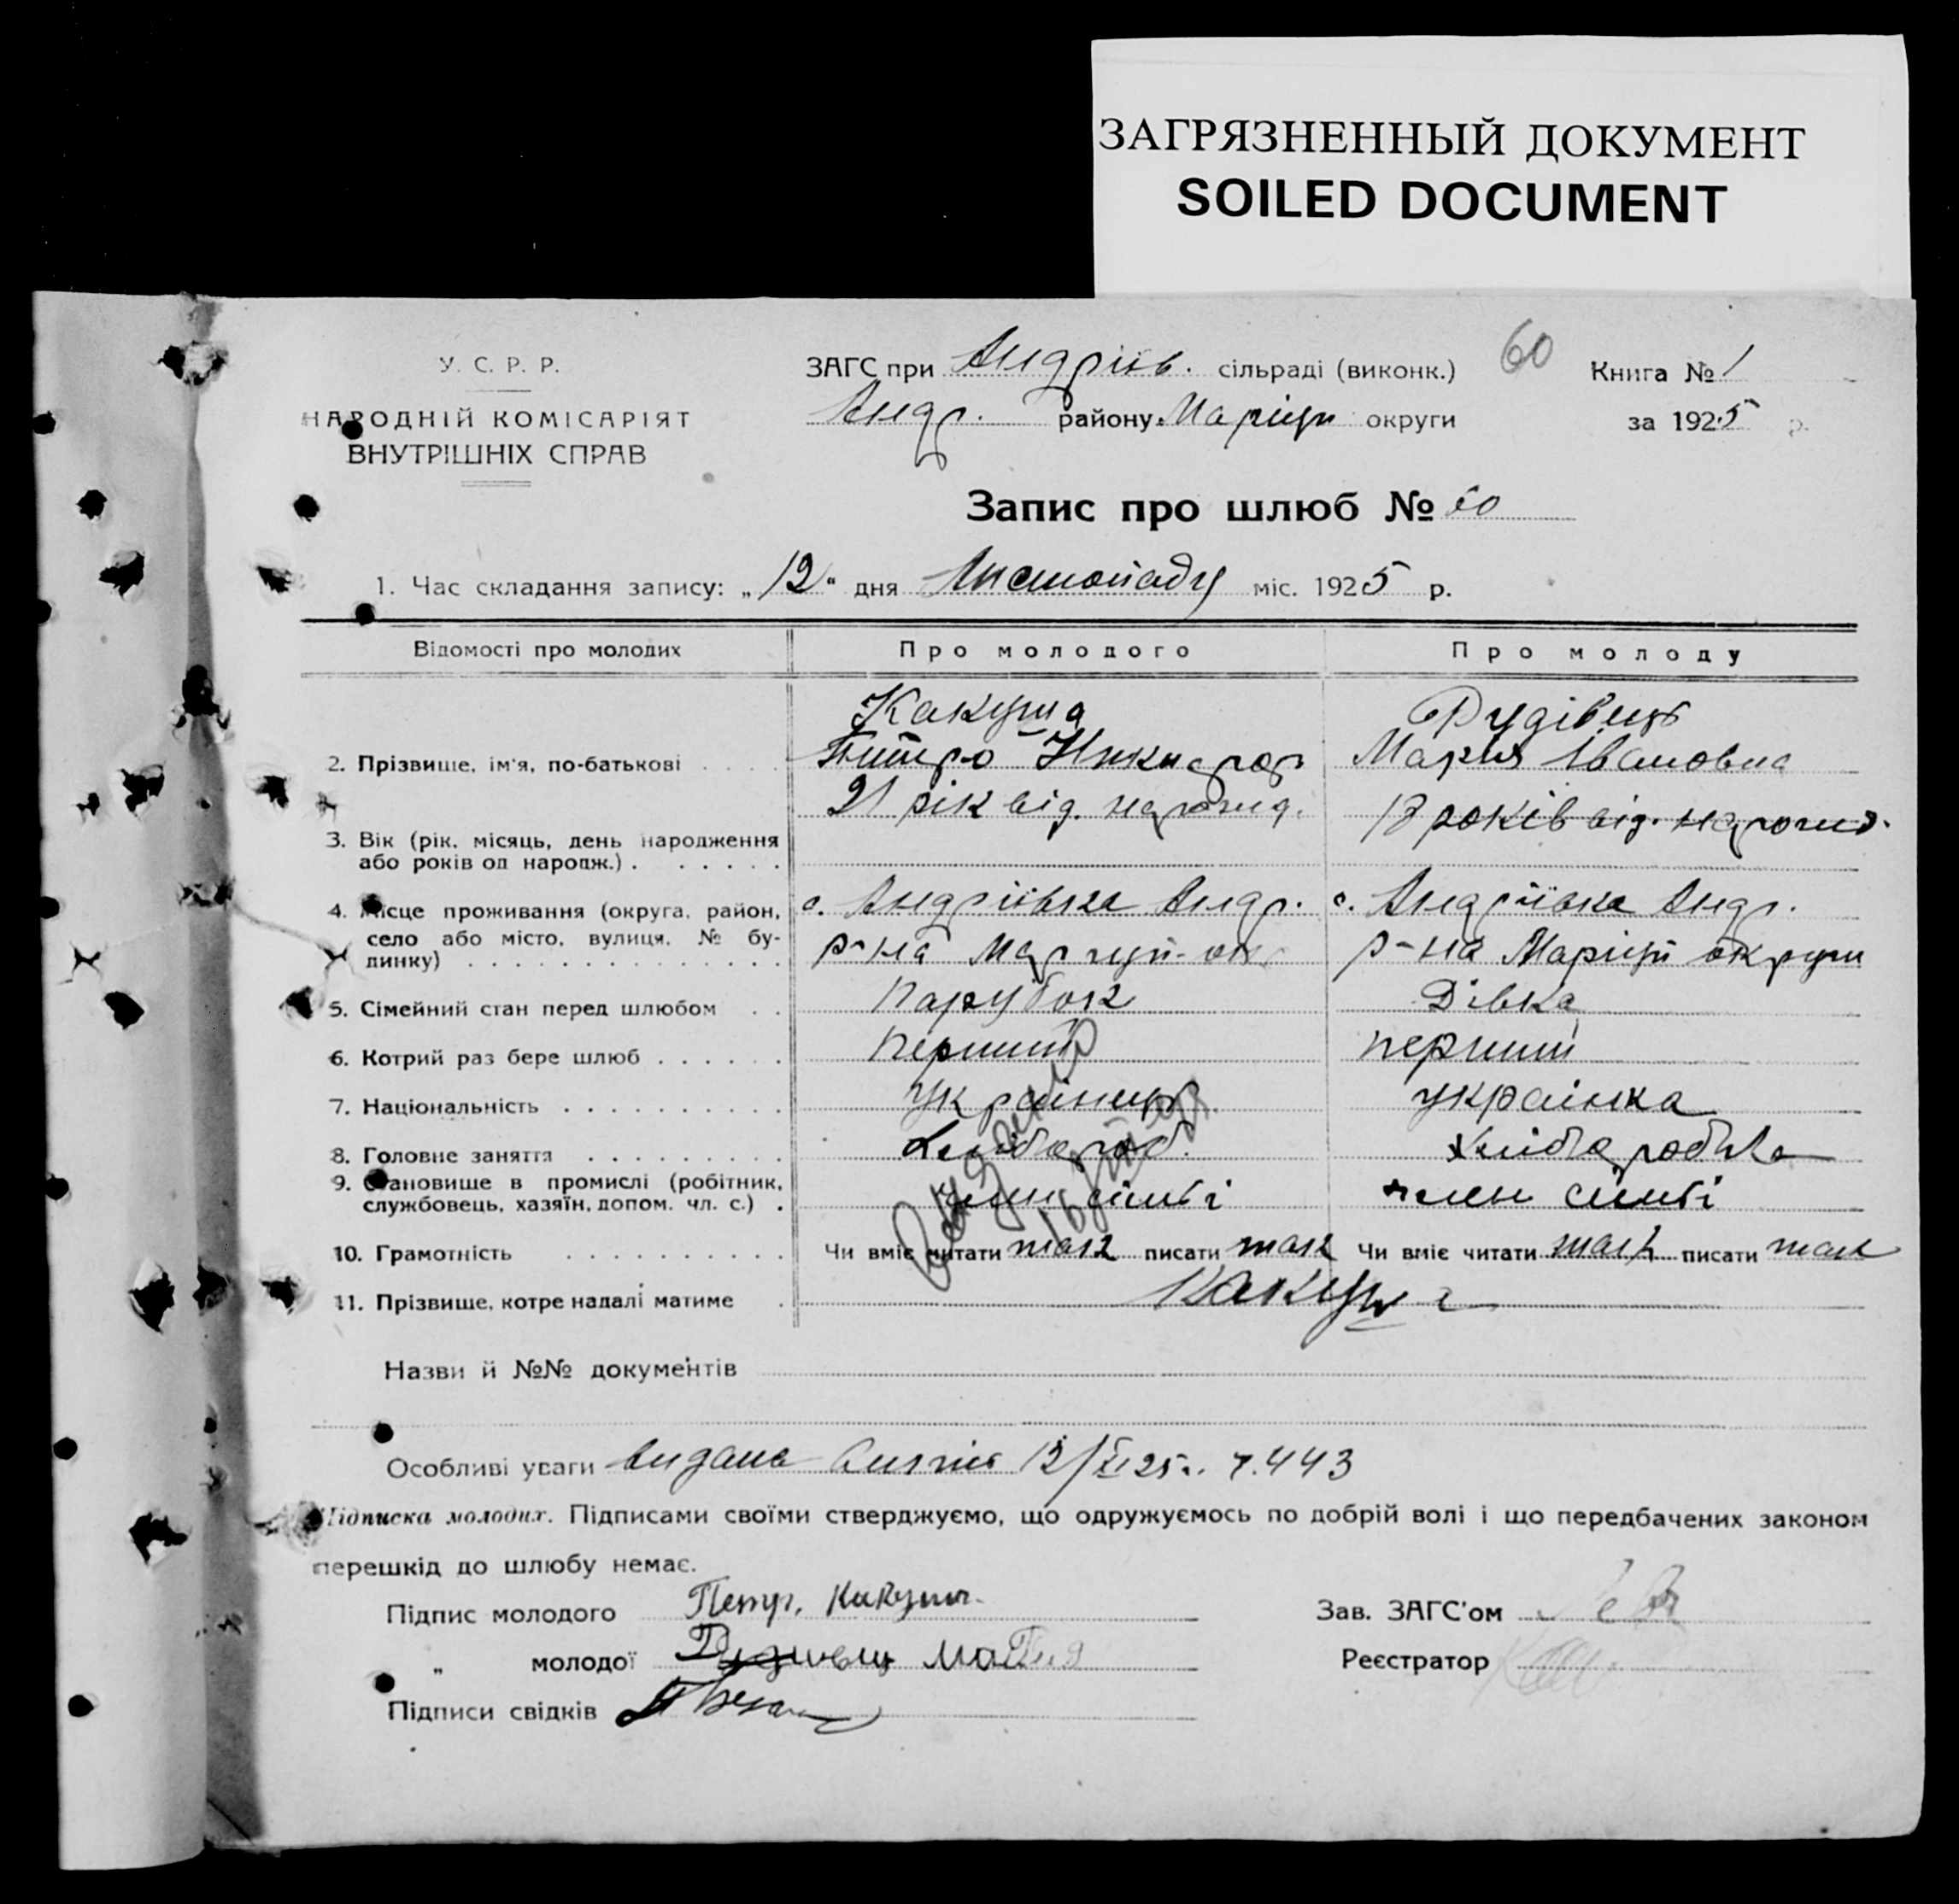 ЗАГРЯЗНЕННЫЙ ДОКУМЕНТ
SOILED DOCUMENT
У. С. Р. Р.
НАРОДНІЙ КОМІСАРІЯТ
ВНУТРІШНІХ СПРАВ
ЗАГС при Андріїв. сільраді (виконк.)
Андр. району Маріуп округи
60
Книга № 1
за 1925 р.
Запис про шлюб № 60
1. Час складання запису: „12" дня Листопаду міс. 1925 р.
Відомості про молодих
Про молодого
Про молоду
2. Прізвище, ім'я, по-батькові . . . .
Какуша
Петро
Рудівець
Мария Івановна
3. Вік (рік, місяць, день народження
або років од народж.) . . . . . .
21 рік від. народ.
18 років від. народ.
4. Місце проживання (округа, район,
село або місто, вулиця, № бу-
динку) . . . . . . . . . . . . . .
с. Андріївка Андр.
р-на Маріуп. ок.
с. Андріївка Андр.
р-на Маріуп округи
5. Сімейний стан перед шлюбом . .
Парубок
Дівка
6. Котрий раз бере шлюб . . . . . .
перший
перший
7. Національність . . . . . . . . . .
Українець
українка
8. Головне заняття . . . . . . . . .
Хлібороб.
9. Становище в промислі (робітник,
службовець, хазяїн, допом. чл. с.) .
член сімьі
член сімьі
10. Грамотність . . . . . . . . . .
Чи вміє читати так писати так
Чи вміє читати так писати так
11. Прізвище, котре надалі матиме .
Какуша
Назви й №№ документів
Особливі уваги видана 12/XI 25 443
Підписка молодих. Підписами своїми стверджуємо, що одружуємось по добрій волі і що передбачених законом
перешкід до шлюбу немає.
Підпис молодого Петр. Какуша
„ молодої
Підписи свідків
Зав. ЗАГС'ом
Реєстратор